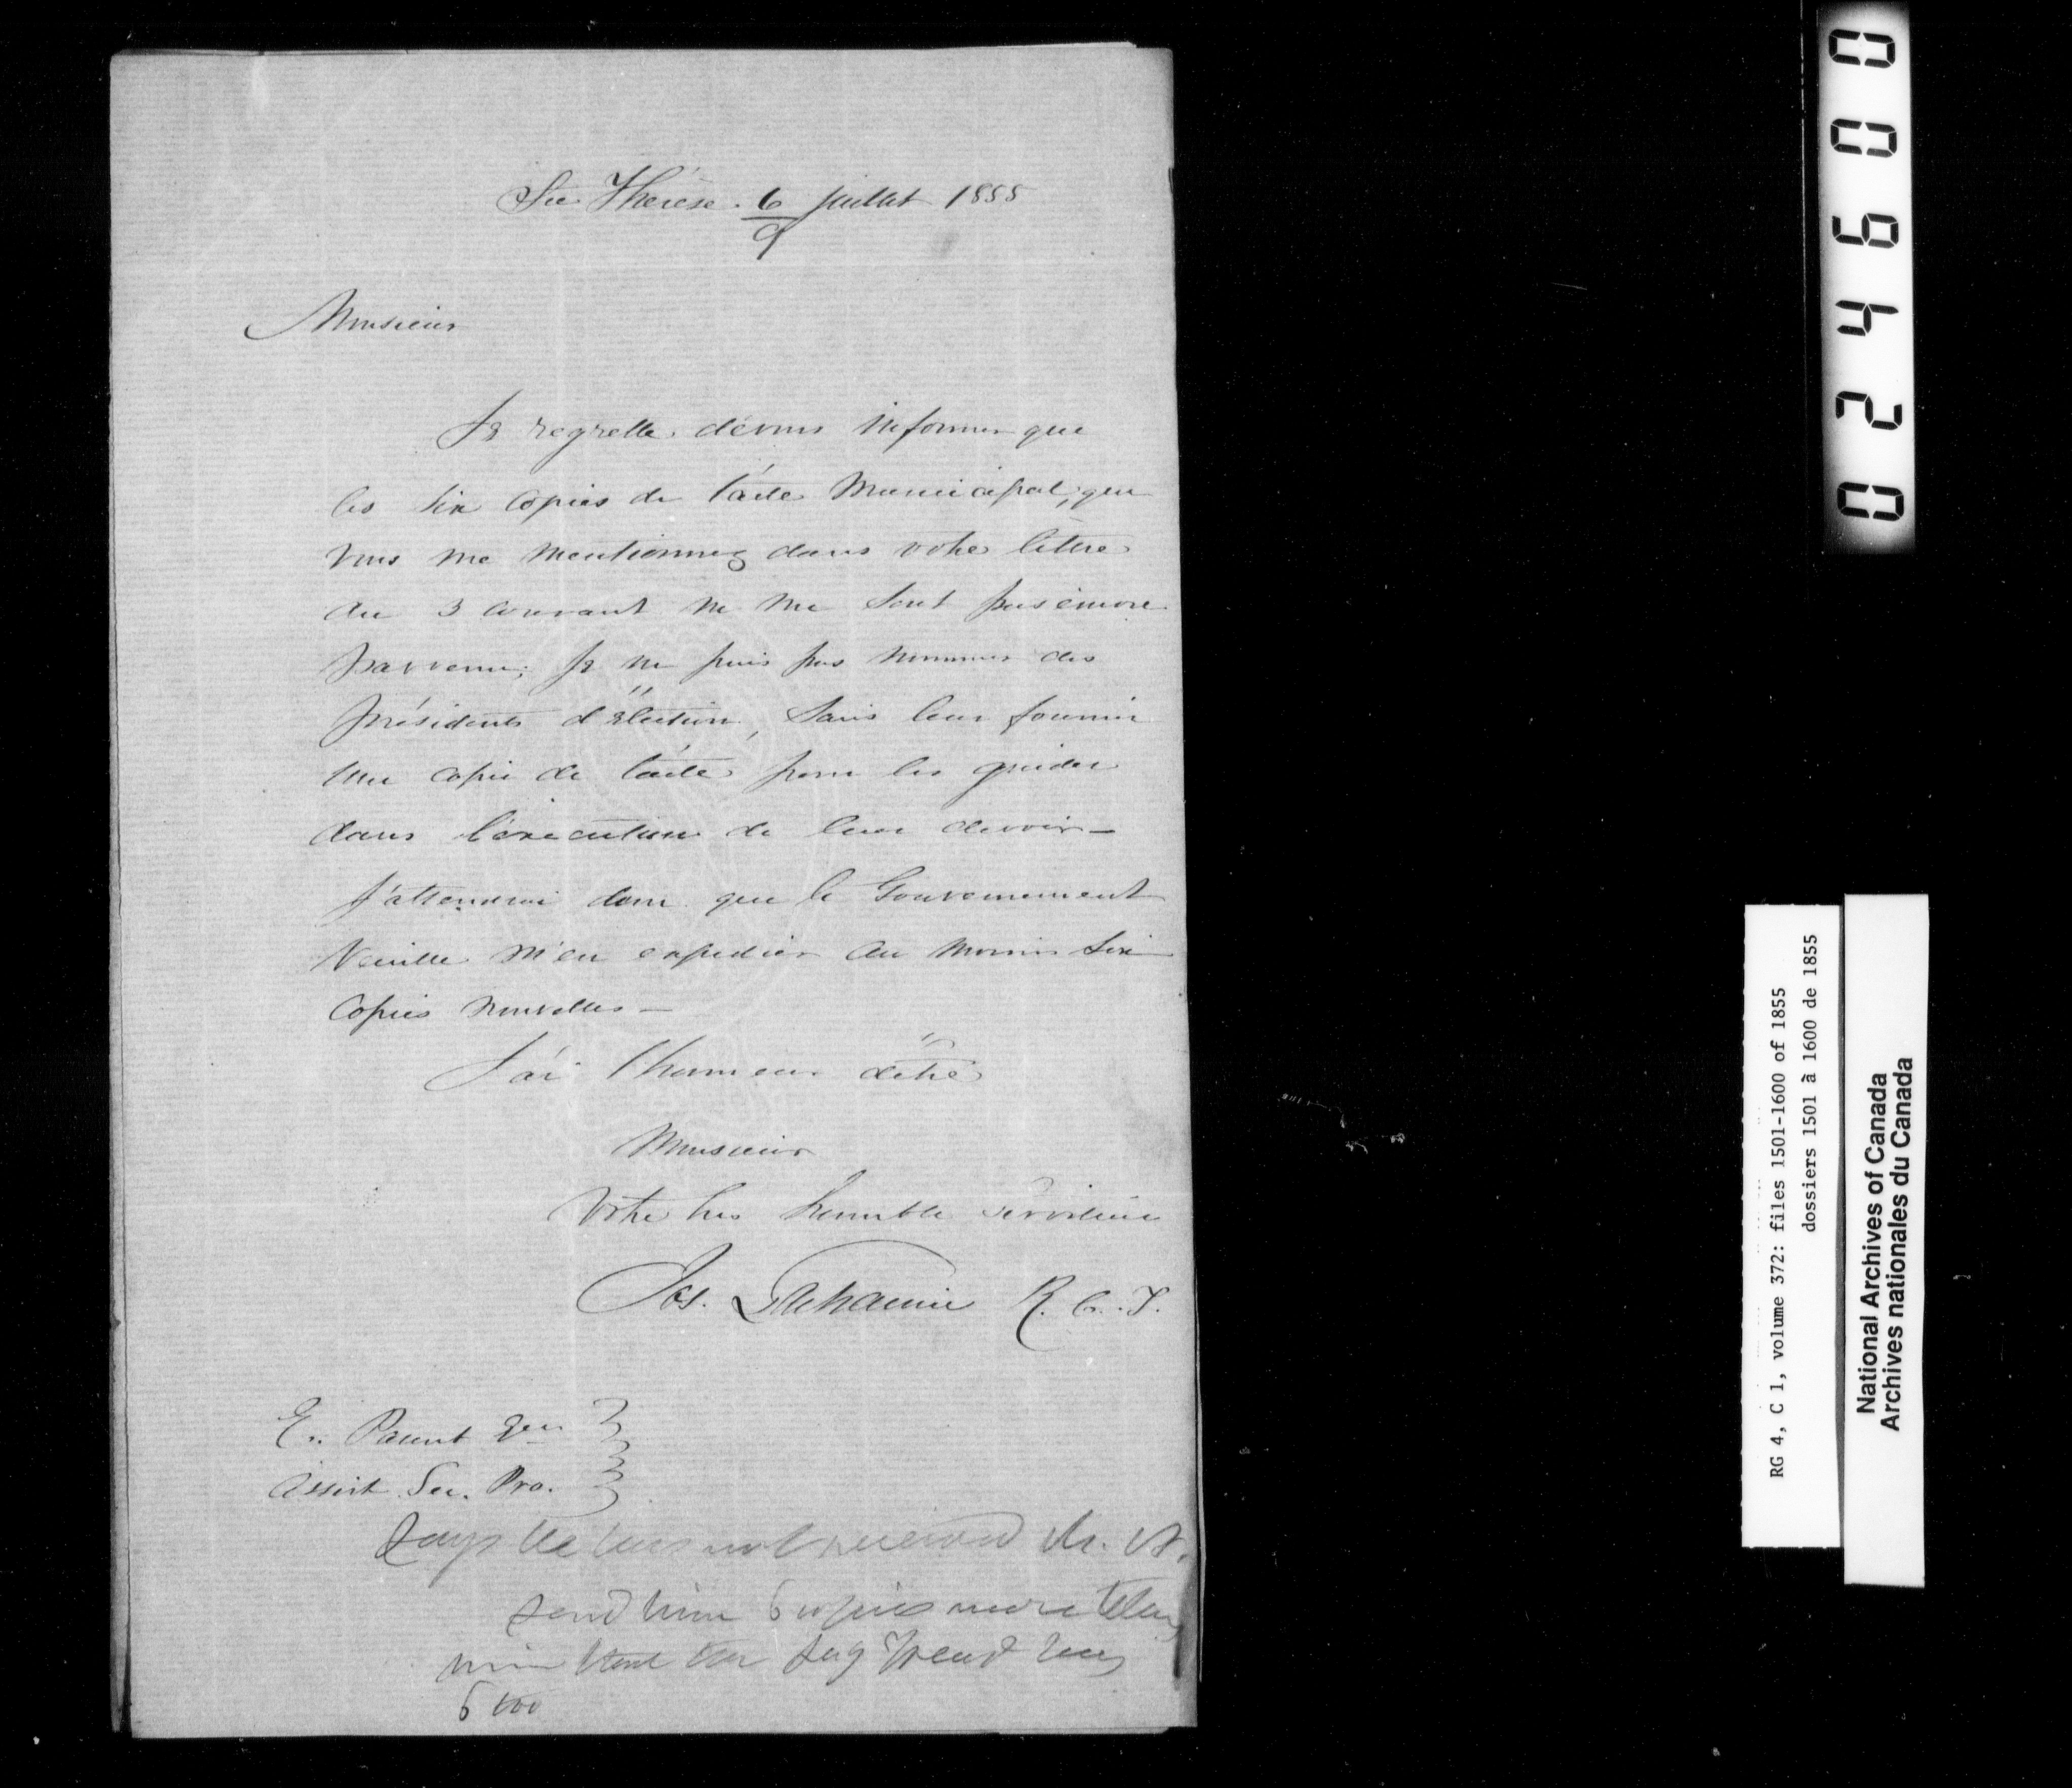 Ste Thérèse. 6 juillet 1855
9
Monsieur
Je regrette dévous informer que
les six copies de l'acte Municipal, que
vous me mentionnez dans votre lettre
du 3 courant ne me sont pas encore
parvenu; Je ne puis pas nommer des
présidents d'Election, sans leur fournir
une copie de l'acte pour les guider
dans l'exécution de leur devoir —
J'attendrai donc que le Gouvernement
Veuille m'en expédier au moins six
Copies nouvelles —
J'ai l'honneur dêtre
Monsieur
Votre très humble serviteur
Jos. R. C. T.
E.. Parent
Assist Sec. Pro.
Says he has not received
send him 6 copies more
6 too
02460 0
RG 4, C 1, volume 372: files 1501-1600 of 1855
dossiers 1501 à 1600 de 1855
National Archives of Canada
Archives nationales du Canada